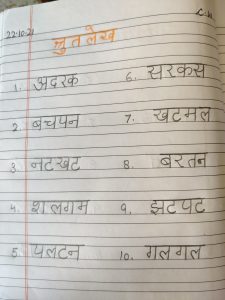 22.10.21
C.W
श्रुतलेख
1. अदरक
2. बचपन
3. नटखट
4. शलगम
5. पलटन
6. सरकस
7. खटमल
8. बरतन
9. झटपट
10. गलगल